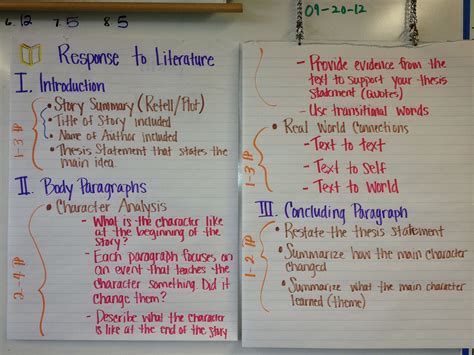 6. 12 7. 8 8. 5
Response to Literature
I. Introduction
• Story Summary (Retell/Plot)
• Title of Story included
• Name of Author included
• Thesis Statement that states the
main idea.
1-3 ¶
II. Body Paragraphs
• Character Analysis
- What is the character like
at the beginning of the
story?
- Each paragraph focuses on
an event that teaches the
character something. Did it
change them?
- Describe what the character
is like at the end of the story
2-4 ¶
09-20-12
- Provide evidence from the
text to support your thesis
statement (Quotes)
- Use transitional words
• Real World Connections
- Text to text
- Text to Self
- Text to World
1-3 ¶
III. Concluding Paragraph
• Restate the thesis statement
• Summarize how the main character
changed
• Summarize what the main character
learned (theme)
1-2 ¶